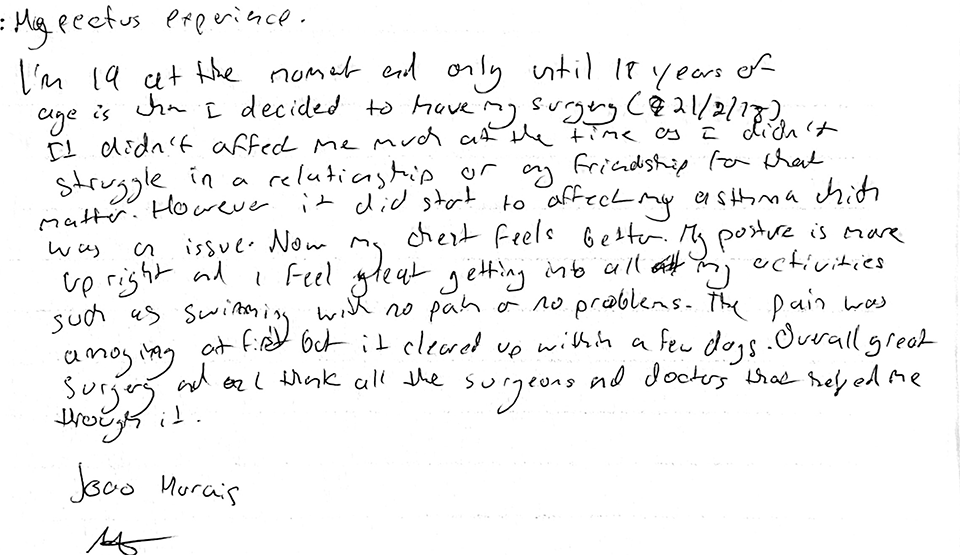 : My pectus experience.
I'm 19 at the moment and only until 18 years of
age is when I decided to have my surgery (21/2/18)
It didn't affect me much at the time as I didn't
struggle in a relationship or any friendship for that
matter. However it did start to affect my asthma which
was an issue. Now my chest feels better. My posture is more
up right and I feel great getting into all my activities
such as swimming with no pain or no problems. The pain was
annoying at first but it cleared up within a few days. Overall great
surgery and I thank all the surgeons and doctors that helped me
through it.
Joao Morais